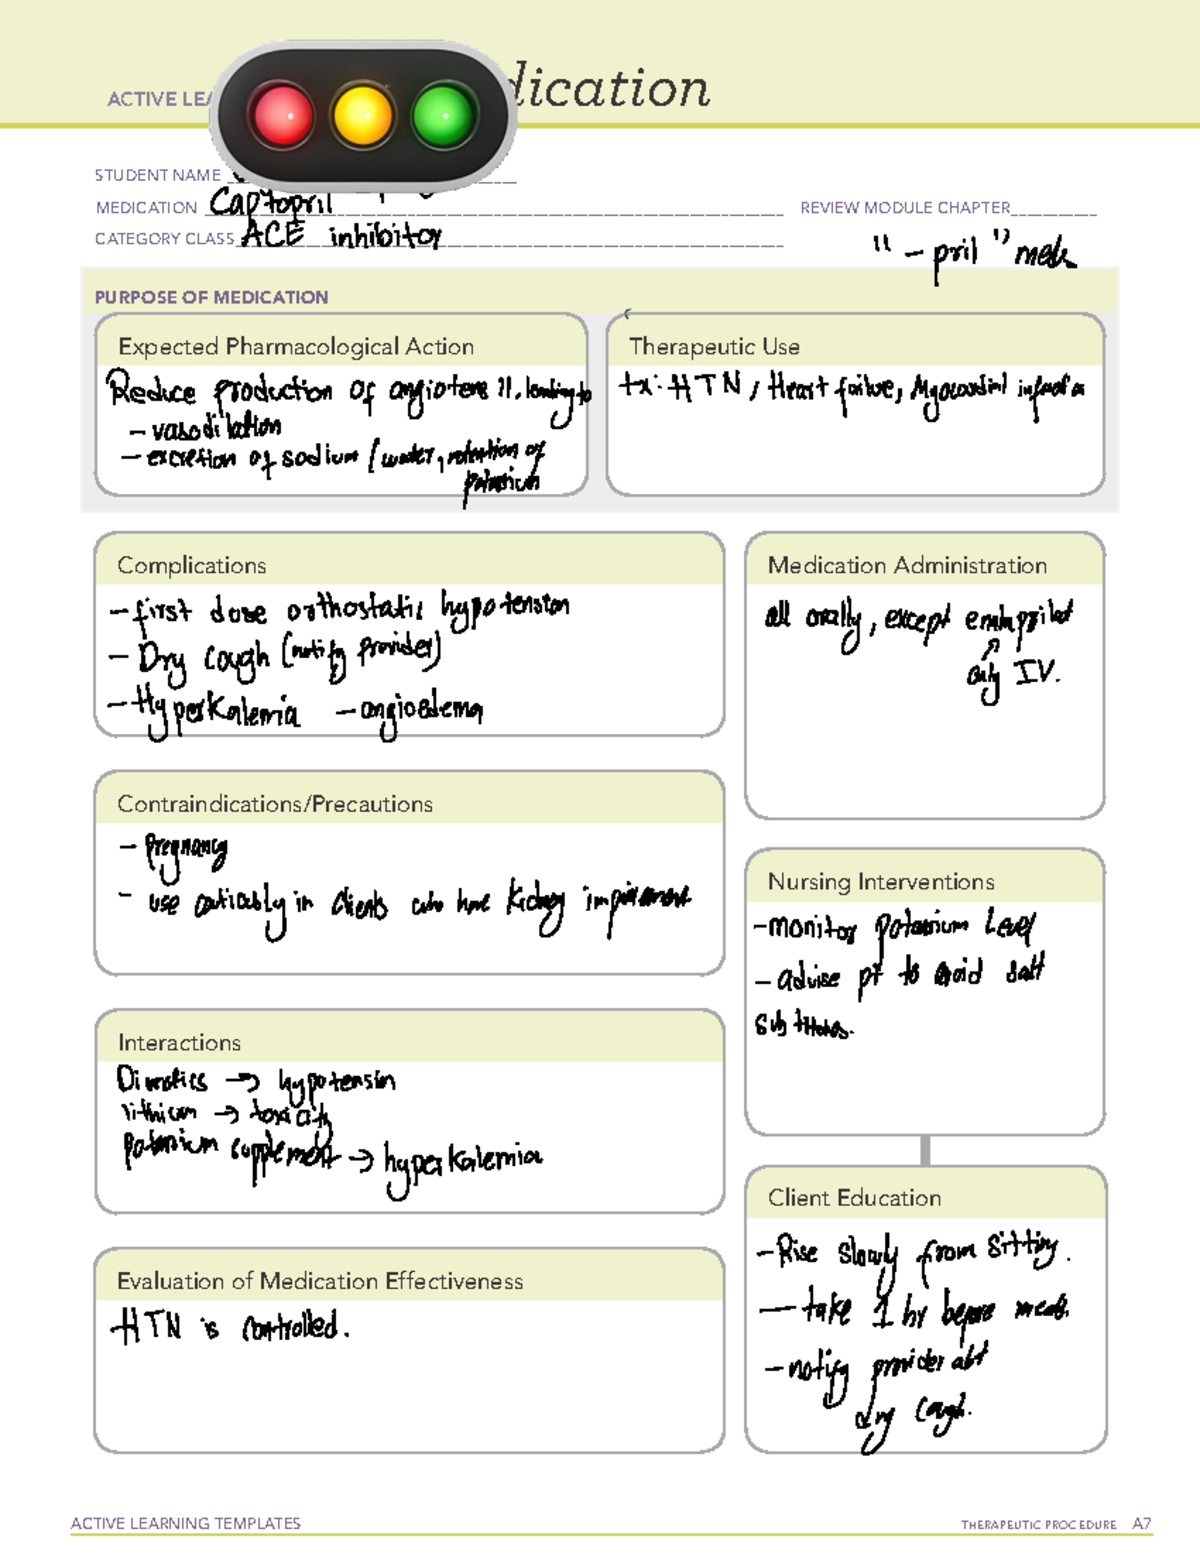 ACTIVE LEA
dication
STUDENT NAME
MEDICATION Captopril
REVIEW MODULE CHAPTER
CATEGORY CLASS ACE inhibitor
"-pril" meds
PURPOSE OF MEDICATION
Expected Pharmacological Action
Reduce production of angiotens II, leading to
- vasodilation
- excretion of sodium / water, retention of
potassium
Therapeutic Use
tx: HTN, Heart failure, Myocardial
Complications
- first dose orthostatic hypotension
- Dry cough (notify provider)
- Hyperkalemia - angioedema
Medication Administration
all orally, except
only IV.
Contraindications/Precautions
- Pregnancy
- use in clients who have kidney
Nursing Interventions
- monitor potassium level
- advise pt to avoid salt
Interactions
→ hypotensin
lithium → toxicity
Potassium supplement → hyperkalemia
Client Education
- Rise slowly from sitting.
- take 1 hr before meals.
- notify provider abt
dry cough.
Evaluation of Medication Effectiveness
HTN is controlled.
ACTIVE LEARNING TEMPLATES
THERAPEUTIC PROCEDURE A7